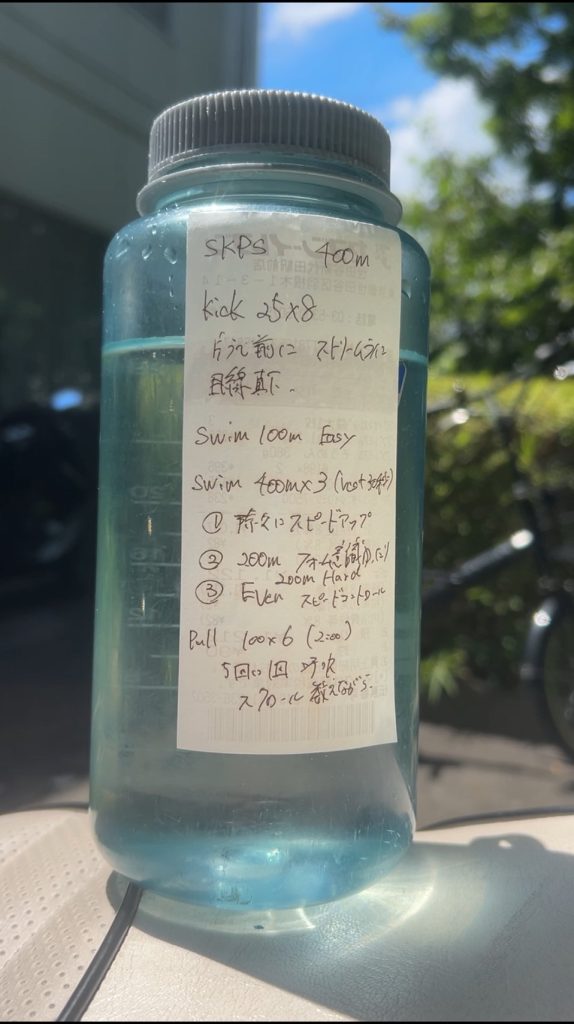 SKPS 400m
Kick 25×8
片うで前に ストリームライン
目線真下.
Swim 100m Easy
Swim 400m×3 (rest 30秒)
① 徐々にスピードアップ
② 200m フォーム意識
200m Hard
③ Even スピードコントロール
Pull 100×6 (2:00)
5回に1回 呼吸
ストロール 数えながら.